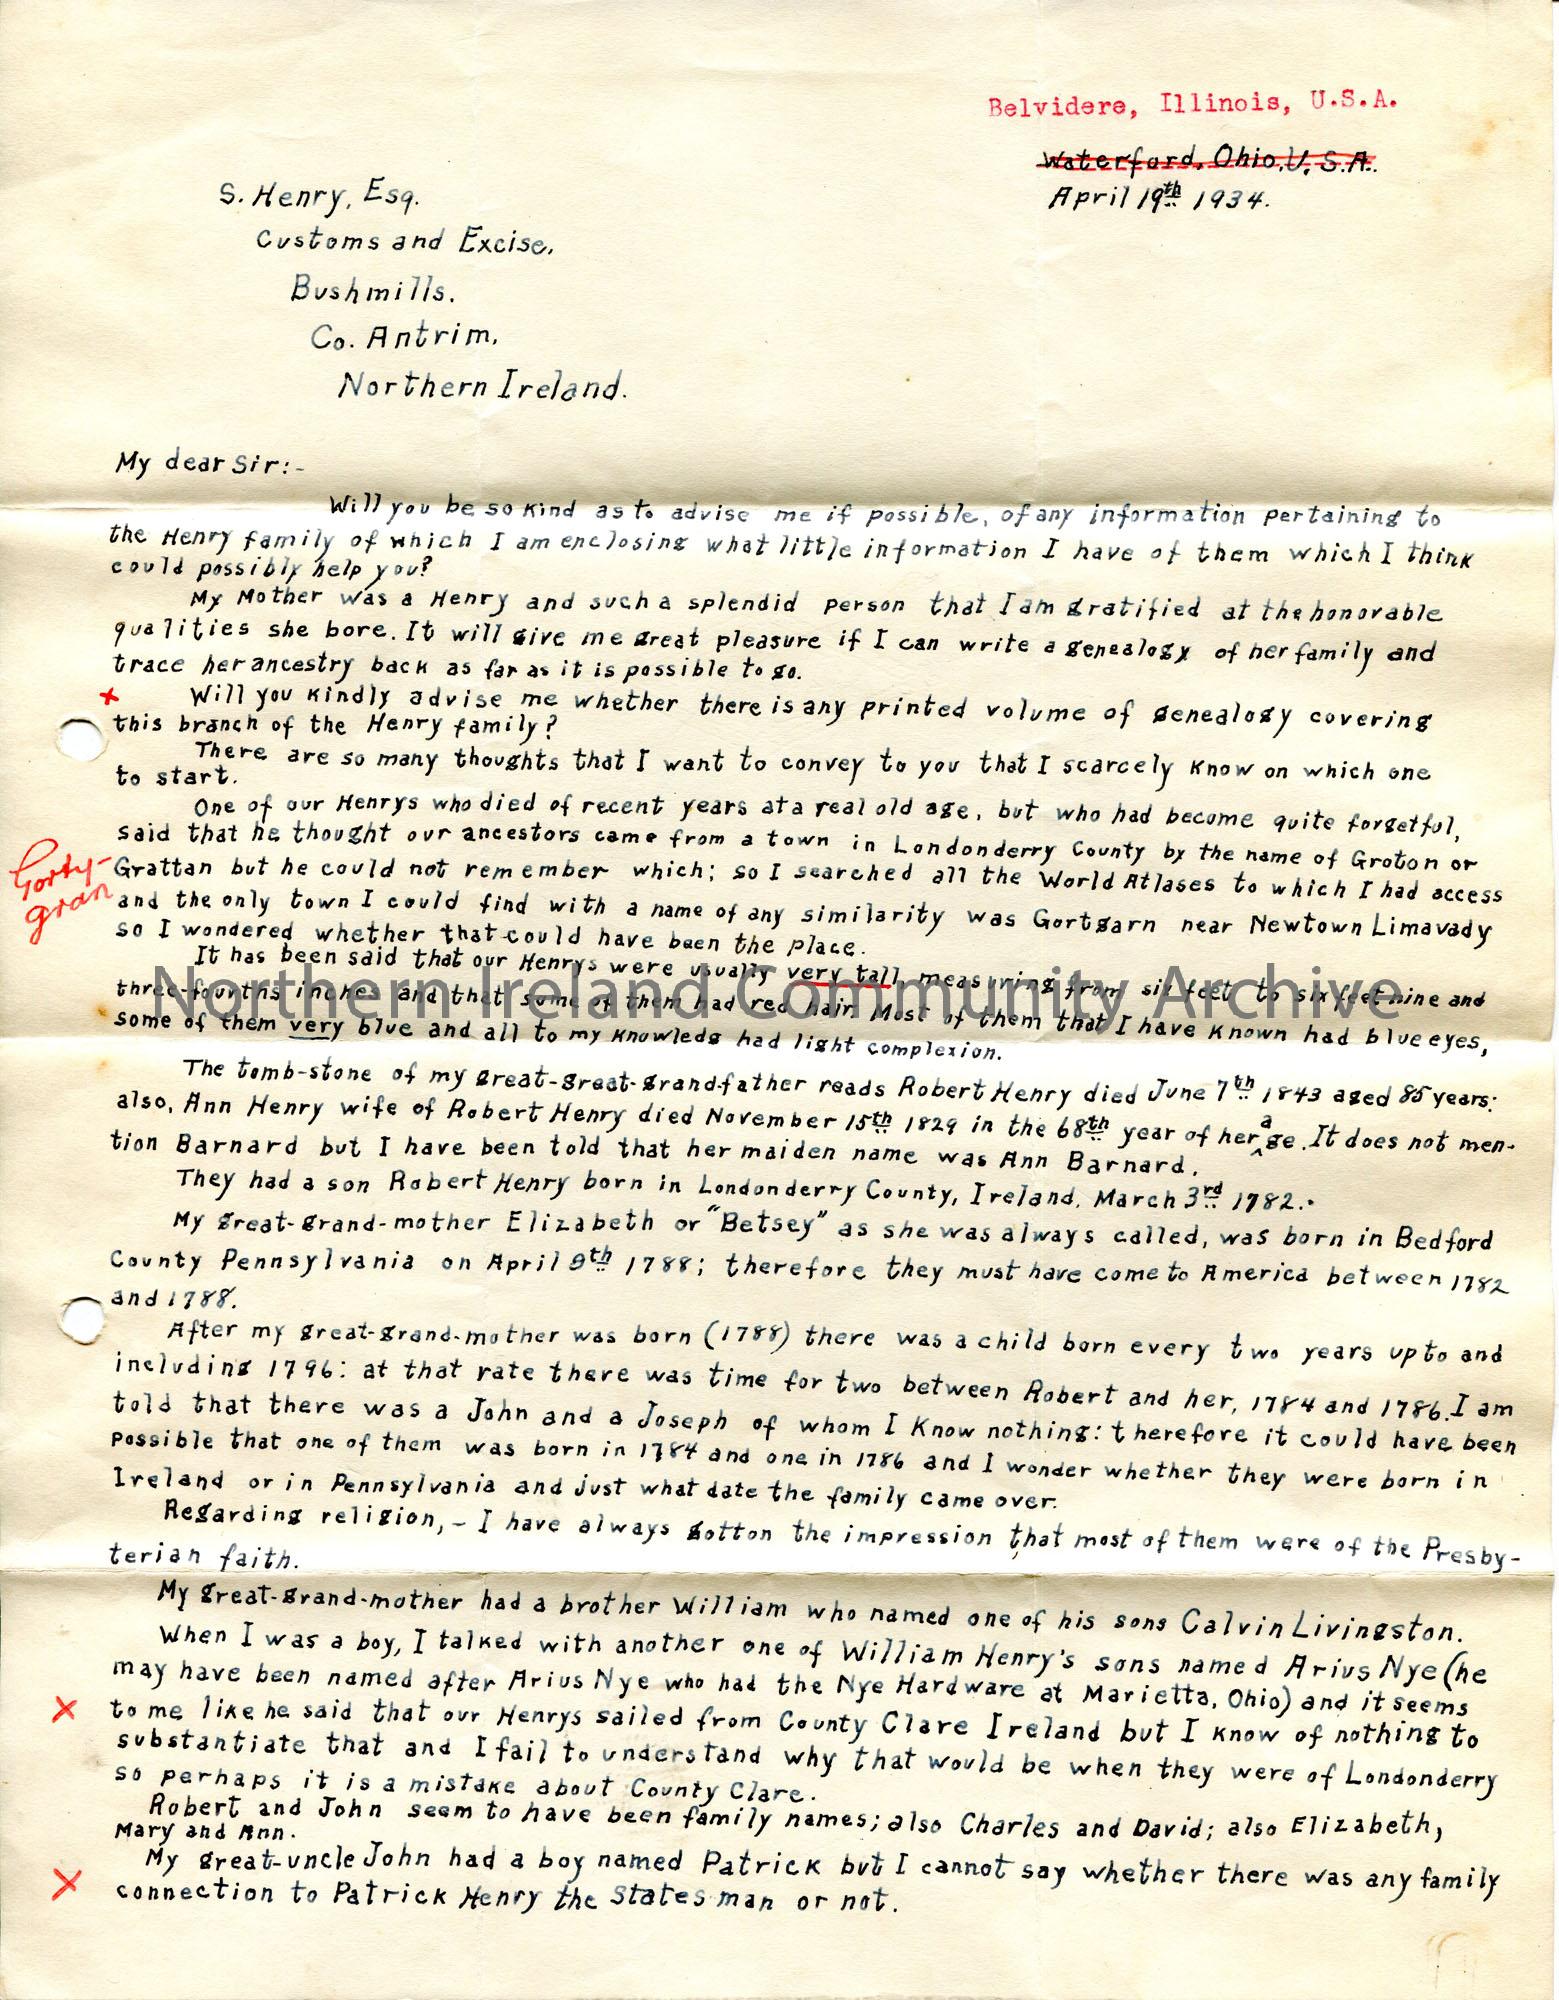 Belvidere, Illinois, U.S.A.
Waterford, Ohio, U.S.A.
April 19th 1934.
S. Henry, Esq.
Customs and Excise,
Bushmills.
Co. Antrim,
Northern Ireland.
My dear Sir:-
Will you be so kind as to advise me if possible, of any information pertaining to
the Henry family of which I am enclosing what little information I have of them which I think
could possibly help you?
My Mother was a Henry and such a splendid person that I am gratified at the honorable
qualities she bore. It will give me great pleasure if I can write a genealogy of her family and
trace her ancestry back as far as it is possible to go.
x Will you kindly advise me whether there is any printed volume of genealogy covering
this branch of the Henry family?
There are so many thoughts that I want to convey to you that I scarcely know on which one
to start.
One of our Henrys who died of recent years at a real old age, but who had become quite forgetful,
said that he thought our ancestors came from a town in Londonderry County by the name of Groton or
Gorty-
gran
Grattan but he could not remember which; so I searched all the World Atlases to which I had access
and the only town I could find with a name of any similarity was Gortgarn near Newtown Limavady
so I wondered whether that could have been the place.
It has been said that our Henrys were usually very tall, measuring from six feet to six feet nine and
three-fourths inches and that some of them had red hair. Most of them that I have known had blue eyes,
Northern Ireland Community Archive
some of them very blue and all to my knowledg had light complexion.
The tomb-stone of my great-great-grand-father reads Robert Henry died June 7th 1843 aged 85 years:
also, Ann Henry wife of Robert Henry died November 15th 1829 in the 68th year of her age. It does not men-
tion Barnard but I have been told that her maiden name was Ann Barnard.
They had a son Robert Henry born in Londonderry County, Ireland, March 3rd 1782.
My great-grand-mother Elizabeth or "Betsey" as she was always called, was born in Bedford
County Pennsylvania on April 9th 1788; therefore they must have come to America between 1782
and 1788.
After my great-grand-mother was born (1788) there was a child born every two years up to and
including 1796: at that rate there was time for two between Robert and her, 1784 and 1786. I am
told that there was a John and a Joseph of whom I know nothing: therefore it could have been
possible that one of them was born in 1784 and one in 1786 and I wonder whether they were born in
Ireland or in Pennsylvania and just what date the family came over.
Regarding religion, - I have always gotton the impression that most of them were of the Presby-
terian faith.
My great-grand-mother had a brother William who named one of his sons Calvin Livingston.
When I was a boy, I talked with another one of William Henry's sons named Arius Nye (he
may have been named after Arius Nye who had the Nye Hardware at Marietta, Ohio) and it seems
x to me like he said that our Henrys sailed from County Clare Ireland but I know of nothing to
substantiate that and I fail to understand why that would be when they were of Londonderry
so perhaps it is a mistake about County Clare.
Robert and John seem to have been family names; also Charles and David; also Elizabeth,
Mary and Ann.
My great-uncle John had a boy named Patrick but I cannot say whether there was any family
x connection to Patrick Henry the States man or not.